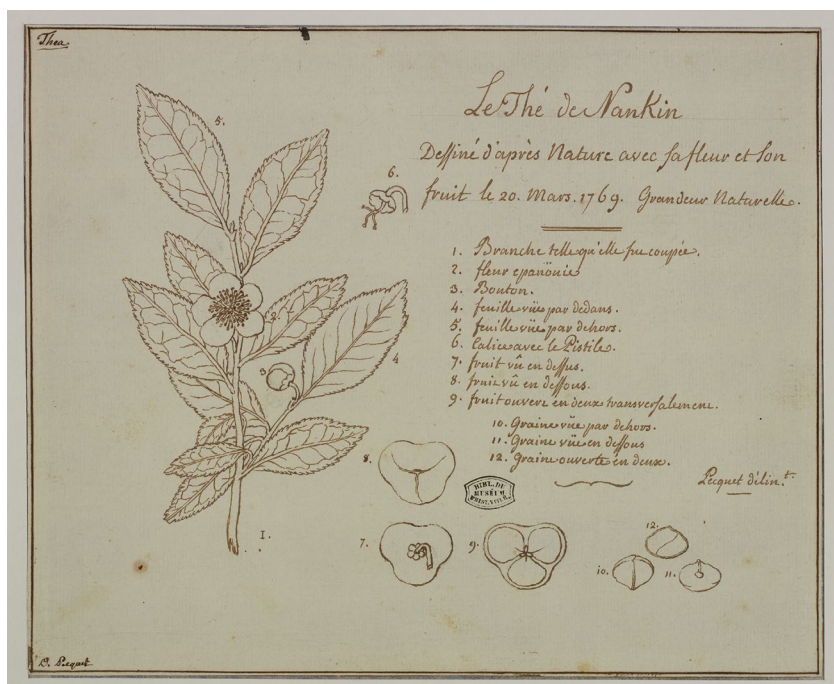 Thea
Le Thé de NanKin
Dessiné d'après Nature avec sa fleur et son
fruit le 20. Mars. 1769. Grandeur Naturelle.
1. Branche telle qu'elle fut coupée.
2. fleur epanöuie
3. Bouton.
4. feuille vüe par dedans.
5. feuille vüe par dehors.
6. Calice avec le Pistile.
7. fruit vû en dessus.
8. fruit vû en dessous.
9. fruit ouvert en deux transversalement.
10. Graine vüe par dehors.
11. Graine vüe en dessous
12. Graine ouverte en deux.
Pecquet délin.t
5.
6.
2.
3
4
1.
8.
7.
9.
12.
10.
11.
BIBL. DU
MUSÉUM
D. Pecquet